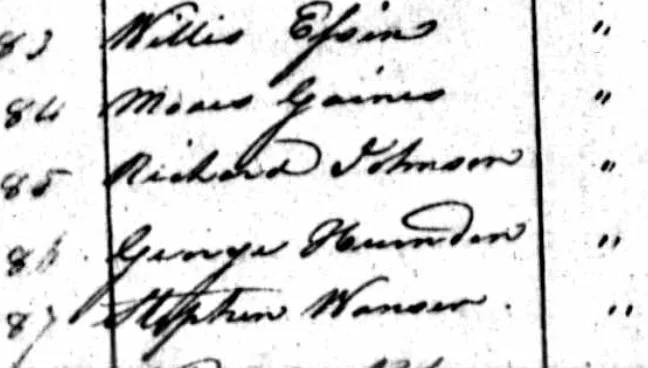 83 Willis Essin "
84 Moses Gaines "
85 Richard Johnson "
86 George "
87 Stephen Wanser . "